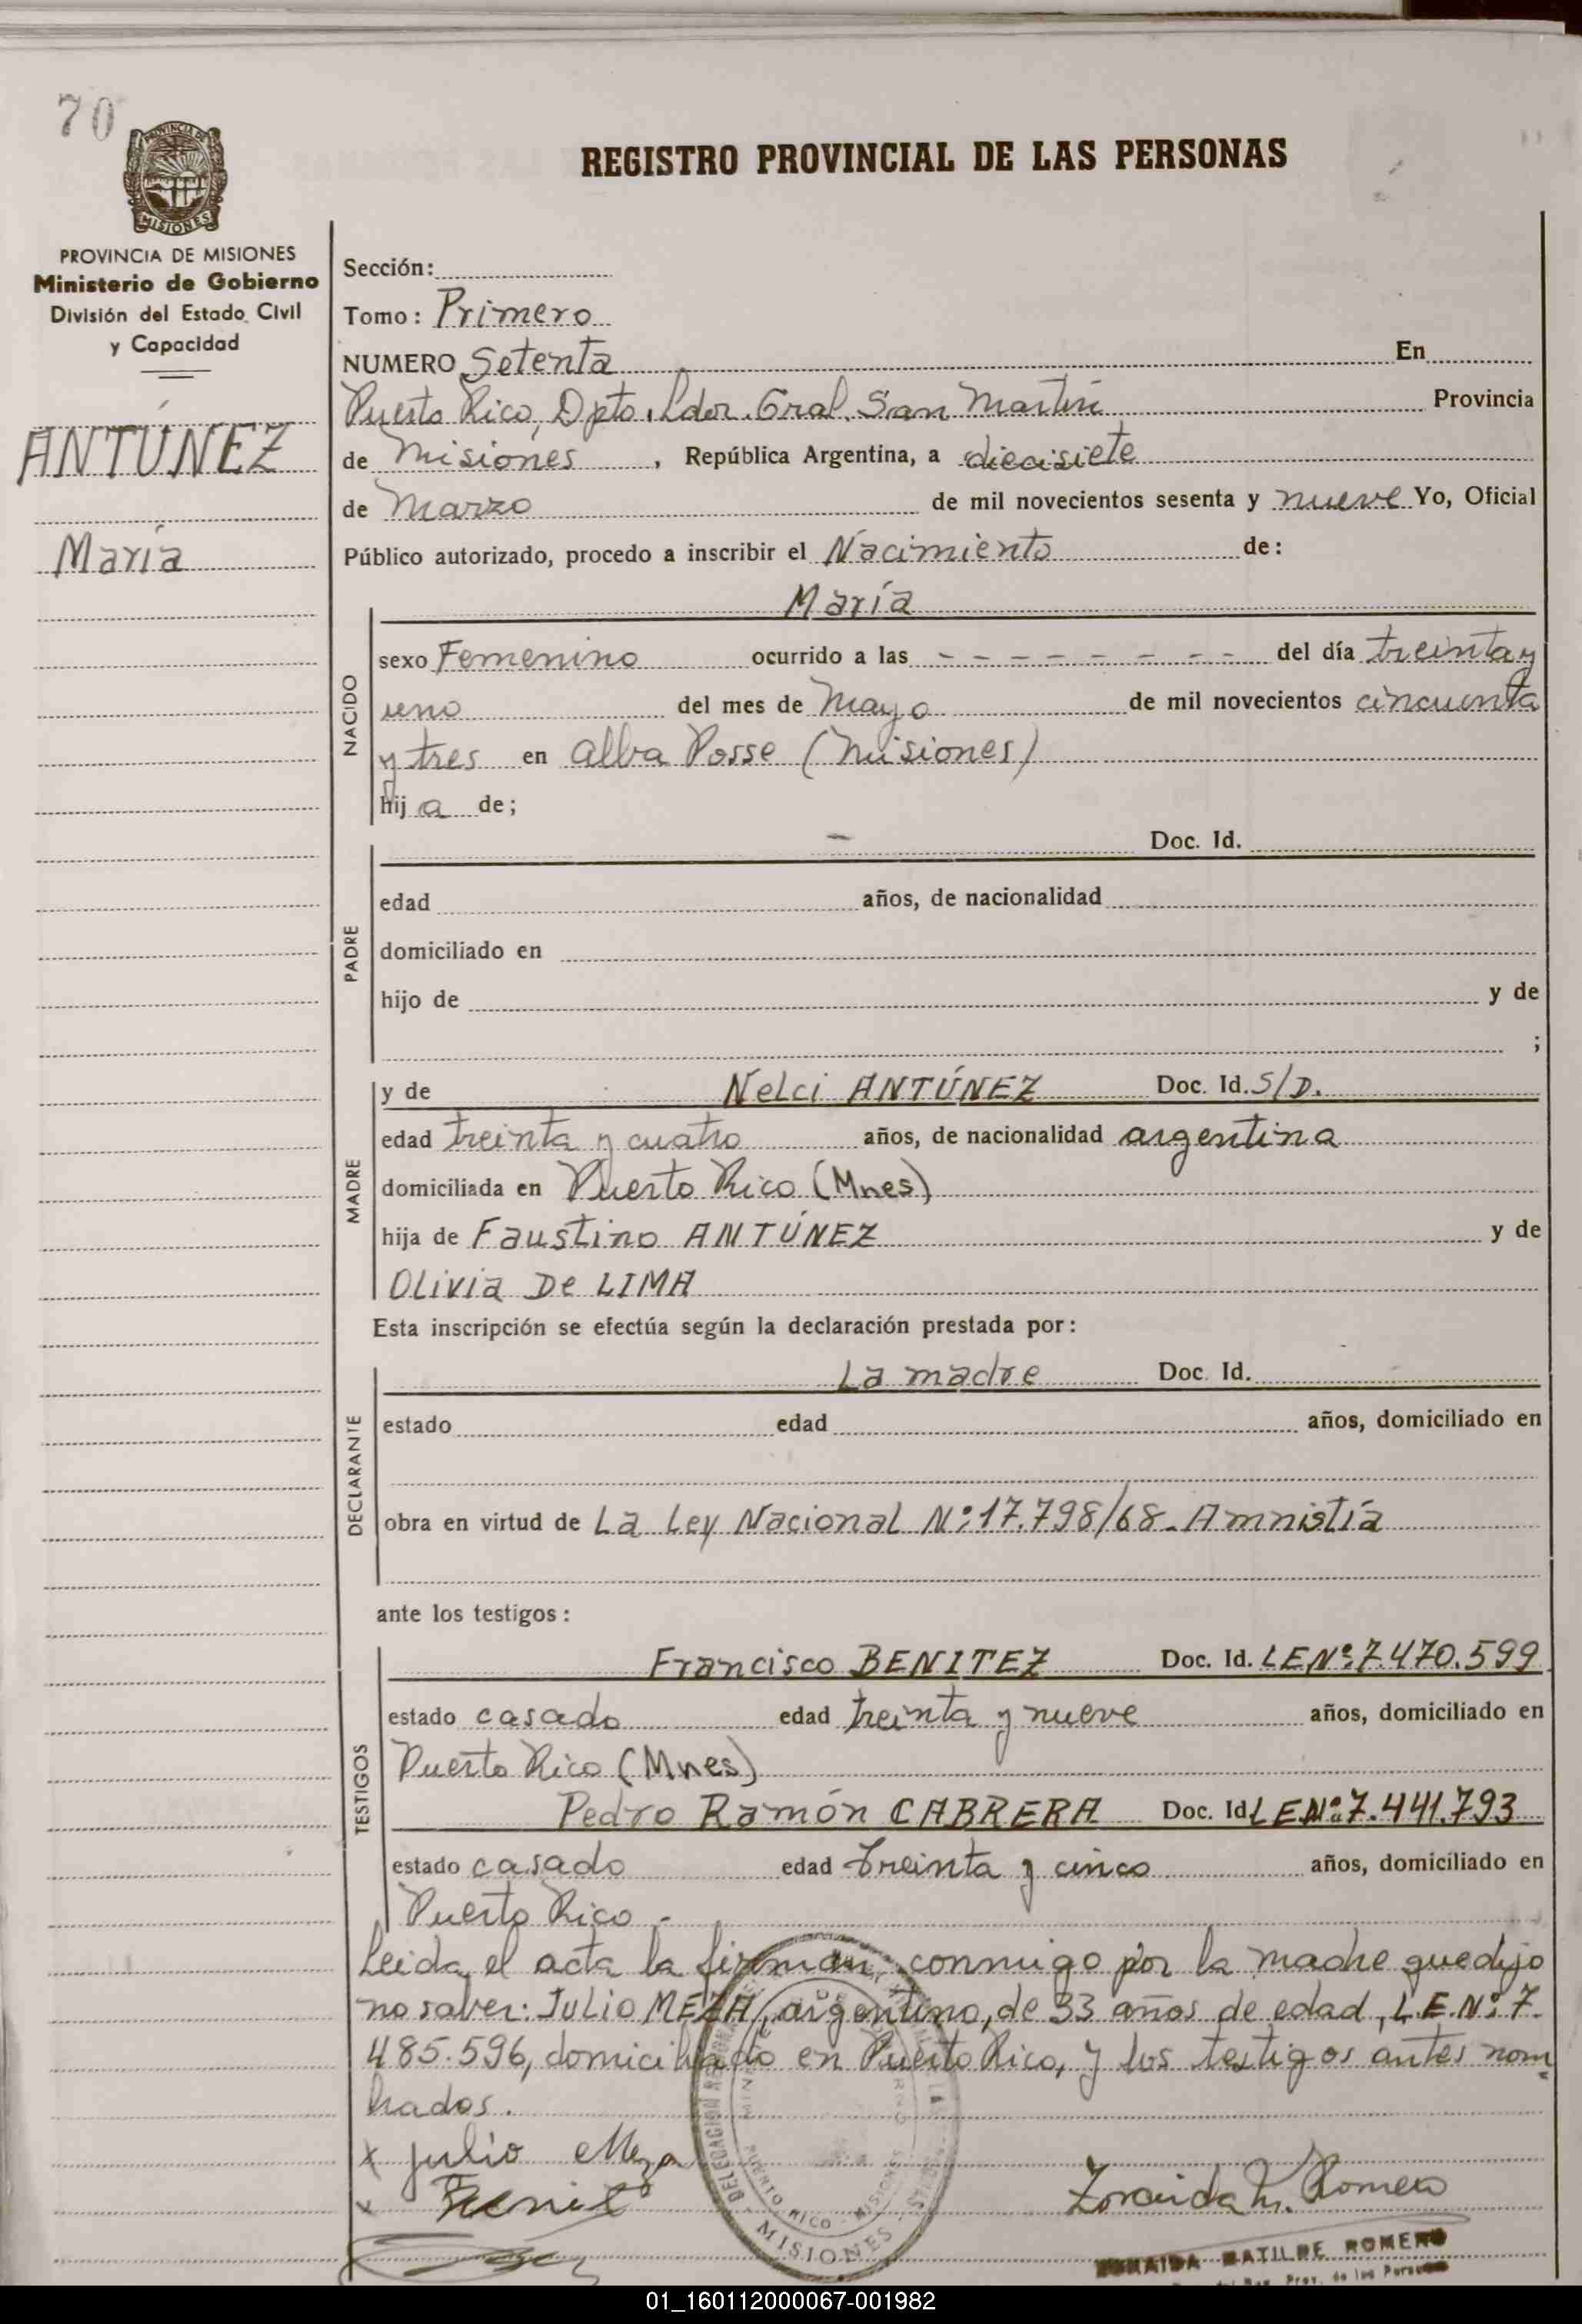 70
PROVINCIA DE
MISIONES
REGISTRO PROVINCIAL DE LAS PERSONAS
PROVINCIA DE MISIONES
Ministerio de Gobierno
División del Estado Civil
y Capacidad
ANTÚNEZ
María
Sección:
Tomo: Primero
NUMERO Setenta En
Puerto Rico, Dpto. Ldor. Gral. San Martín Provincia
de Misiones, República Argentina, a diecisiete
de Marzo de mil novecientos sesenta y nueve Yo, Oficial
Público autorizado, procedo a inscribir el Nacimiento de:
María
NACIDO
sexo Femenino ocurrido a las - - - - - - - - - del día treinta y
uno del mes de Mayo de mil novecientos cincuenta
y tres en Alba Posse (Misiones)
hija de;
PADRE
- Doc. Id.
edad años, de nacionalidad
domiciliado en
hijo de y de
;
MADRE
y de Nelci ANTÚNEZ Doc. Id. S/D.
edad treinta y cuatro años, de nacionalidad argentina
domiciliada en Puerto Rico (Mnes)
hija de Faustino ANTÚNEZ y de
Olivia De LIMA
Esta inscripción se efectúa según la declaración prestada por:
DECLARANTE
La madre Doc. Id.
estado edad años, domiciliado en
obra en virtud de La Ley Nacional Nº:17.798/68-Amnistía
ante los testigos:
TESTIGOS
Francisco BENITEZ Doc. Id. LENº:7.470.599
estado casado edad treinta y nueve años, domiciliado en
Puerto Rico (Mnes)
Pedro Ramón CABRERA Doc. Id. LENº:7.441.793
estado casado edad treinta y cinco años, domiciliado en
Puerto Rico.-
Leida el acta la firman conmigo por la madre que dijo
no saber: JULIO MEZA, argentino, de 33 años de edad, L.E.Nº: 7.
485.596, domiciliado en Puerto Rico, y los testigos antes nom
brados.
x Julio Meza
x Benitez
Zoraida M. Romero
DELEGACION
PUERTO RICO - MISIONES
MISIONES
ZORAIDA MATILDE ROMERO
Prov. de las Personas
01_160112000067-001982